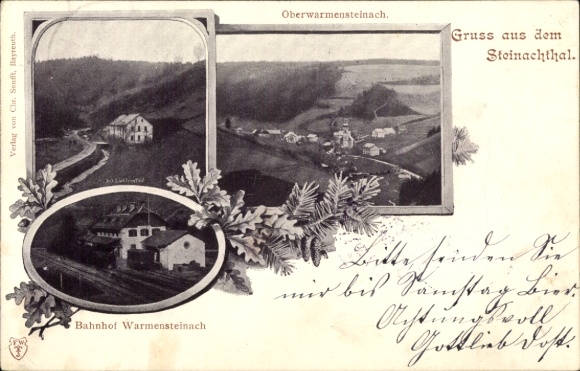 Oberwarmensteinach.
Gruss aus dem
Steinachthal.
Verlag von Chr. Senfft, Bayreuth.
Bahnhof Warmensteinach
Bitte senden Sie
mir bis Samstag Bier.
Achtungsvoll
Gottlieb Dost.